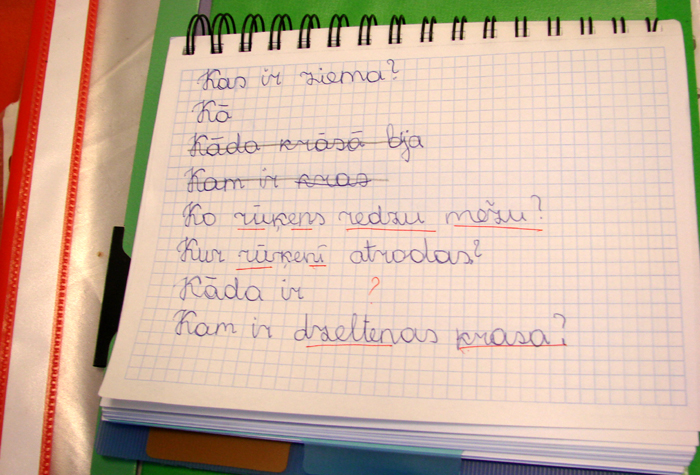 Kas ir ziema?
Kā
Kāda krāsā bja
Kam ir kras
Ko rūķens redzu mežu?
Kur rūķenī atrodas?
Kāda ir ?
Kam ir dzeltenas krasa?